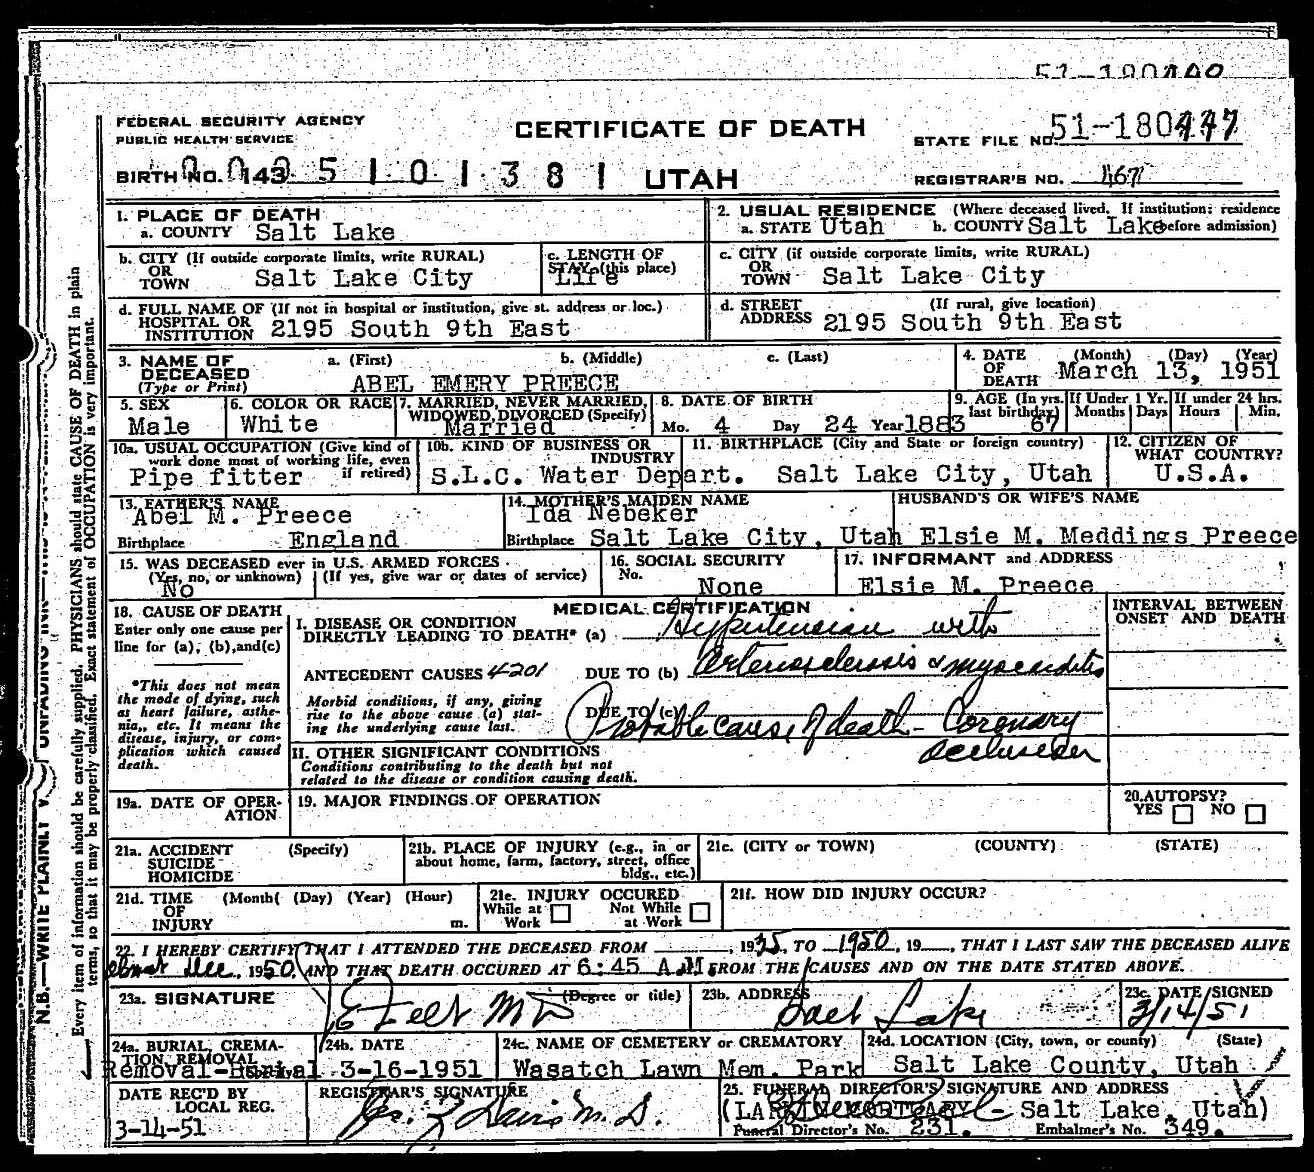 FEDERAL SECURITY AGENCY
PUBLIC HEALTH SERVICE
CERTIFICATE OF DEATH
STATE FILE NO. 51-180447
BIRTH NO. 143
UTAH
REGISTRAR'S NO. 467
1. PLACE OF DEATH
a. COUNTY Salt Lake
2. USUAL RESIDENCE (Where deceased lived. If institution: residence before admission)
a. STATE Utah b. COUNTY Salt Lake
b. CITY (If outside corporate limits, write RURAL) OR TOWN Salt Lake City
c. LENGTH OF STAY (this place) Life
c. CITY (if outside corporate limits, write RURAL) OR TOWN Salt Lake City
d. FULL NAME OF (If not in hospital or institution, give st. address or loc.) HOSPITAL OR INSTITUTION 2195 South 9th East
d. STREET ADDRESS (If rural, give location) 2195 South 9th East
3. NAME OF DECEASED (Type or Print) a. (First) b. (Middle) c. (Last)
ABEL EMERY PREECE
4. DATE OF DEATH (Month) (Day) (Year) March 13, 1951
5. SEX Male
6. COLOR OR RACE White
7. MARRIED, NEVER MARRIED, WIDOWED, DIVORCED (Specify) Married
8. DATE OF BIRTH Mo. 4 Day 24 Year 1883
9. AGE (In yrs. last birthday) 67
If Under 1 Yr. Months Days
If under 24 hrs. Hours Min.
10a. USUAL OCCUPATION (Give kind of work done most of working life, even if retired) Pipe fitter
10b. KIND OF BUSINESS OR INDUSTRY S.L.C. Water Depart.
11. BIRTHPLACE (City and State or foreign country) Salt Lake City, Utah
12. CITIZEN OF WHAT COUNTRY? U.S.A.
13. FATHER'S NAME Abel M. Preece
Birthplace England
14. MOTHER'S MAIDEN NAME Ida Nebeker
Birthplace Salt Lake City, Utah
HUSBAND'S OR WIFE'S NAME Elsie M. Meddings Preece
15. WAS DECEASED ever in U.S. ARMED FORCES (Yes, no, or unknown) (If yes, give war or dates of service) No
16. SOCIAL SECURITY No. None
17. INFORMANT and ADDRESS Elsie M. Preece
18. CAUSE OF DEATH
Enter only one cause per line for (a), (b), and (c)
*This does not mean the mode of dying, such as heart failure, asthenia, etc. It means the disease, injury, or complication which caused death.
MEDICAL CERTIFICATION
INTERVAL BETWEEN ONSET AND DEATH
I. DISEASE OR CONDITION DIRECTLY LEADING TO DEATH* (a) Hypertension with
ANTECEDENT CAUSES 4201 DUE TO (b) Arteriosclerosis & myocarditis
Morbid conditions, if any, giving rise to the above cause (a) stating the underlying cause last.
DUE TO (c) Probable cause of death - Coronary occlusion
II. OTHER SIGNIFICANT CONDITIONS
Conditions contributing to the death but not related to the disease or condition causing death.
19a. DATE OF OPERATION
19. MAJOR FINDINGS OF OPERATION
20. AUTOPSY? YES NO
21a. ACCIDENT SUICIDE HOMICIDE (Specify)
21b. PLACE OF INJURY (e.g., in or about home, farm, factory, street, office bldg., etc.)
21c. (CITY or TOWN) (COUNTY) (STATE)
21d. TIME OF INJURY (Month( (Day) (Year) (Hour) m.
21e. INJURY OCCURED While at Work Not While at Work
21f. HOW DID INJURY OCCUR?
22. I HEREBY CERTIFY THAT I ATTENDED THE DECEASED FROM , 1935, TO 1950, 19 , THAT I LAST SAW THE DECEASED ALIVE
Dec., 1950, AND THAT DEATH OCCURED AT 6:45 A.M. FROM THE CAUSES AND ON THE DATE STATED ABOVE.
23a. SIGNATURE (Degree or title) Felt MD
23b. ADDRESS Salt Lake
23c. DATE SIGNED 3/14/51
24a. BURIAL, CREMATION, REMOVAL Removal-Burial
24b. DATE 3-16-1951
24c. NAME OF CEMETERY or CREMATORY Wasatch Lawn Mem. Park
24d. LOCATION (City, town, or county) (State) Salt Lake County, Utah
DATE REC'D BY LOCAL REG. 3-14-51
REGISTRAR'S SIGNATURE Davis M.D.
25. FUNERAL DIRECTOR'S SIGNATURE AND ADDRESS
(LARKIN MORTUARY - Salt Lake, Utah)
Funeral Director's No. 231. Embalmer's No. 349.
Every item of information should be carefully supplied. PHYSICIANS should state CAUSE OF DEATH in plain
terms, so that it may be properly classified. Exact statement of OCCUPATION is very important.
N.B.—WRITE PLAINLY